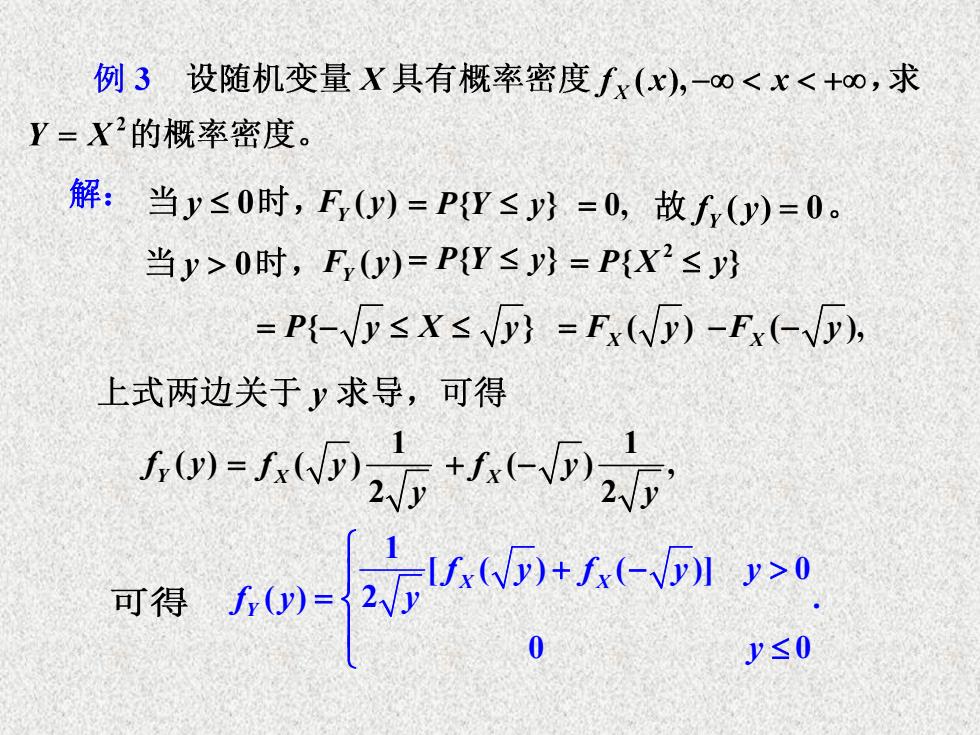 例 3 设随机变量 X 具有概率密度 f_X(x), −∞ < x < +∞，求
Y = X²的概率密度。
解： 当 y ≤ 0时，F_Y(y) = P{Y ≤ y} = 0, 故 f_Y(y) = 0。
当 y > 0时，F_Y(y) = P{Y ≤ y} = P{X² ≤ y}
= P{−√y ≤ X ≤ √y} = F_X(√y) − F_X(−√y),
上式两边关于 y 求导，可得
f_Y(y) = f_X(√y) \frac{1}{2√y} + f_X(−√y) \frac{1}{2√y},
可得 f_Y(y) = \begin{cases} \frac{1}{2√y}[f_X(√y) + f_X(−√y)] & y > 0 \\ 0 & y ≤ 0 \end{cases}.